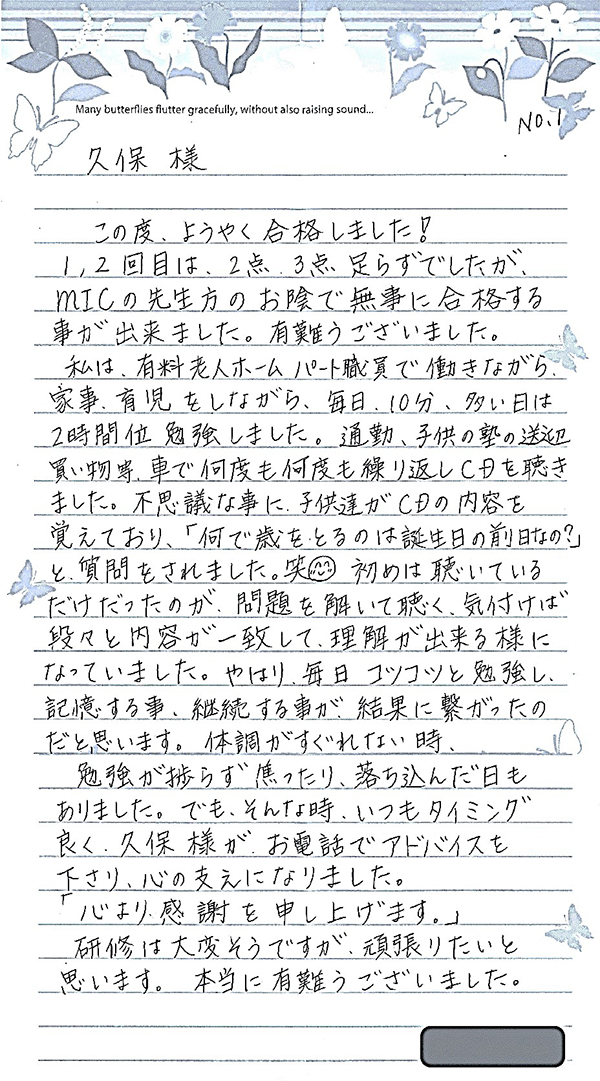 Many butterflies flutter gracefully, without also raising sound...
NO.1
久保 様
この度、ようやく合格しました!
1,2回目は、2点、3点 足らずでしたが、
MICの先生方のお陰で無事に合格する
事が出来ました。有難うございました。
私は、有料老人ホーム パート職員で働きながら、
家事、育児をしながら、毎日、10分、多い日は
2時間位 勉強しました。通勤、子供の塾の送迎
買い物等、車で何度も何度も繰り返しCDを聴き
ました。不思議な事に、子供達がCDの内容を
覚えており、「何で歳をとるのは誕生日の前日なの?」
と、質問をされました。笑 初めは聴いている
だけだったのが、問題を解いて聴く、気付けば
段々と内容が一致して、理解が出来る様に
なっていました。やはり、毎日コツコツと勉強し、
記憶する事、継続する事が、結果に繋がったの
だと思います。体調がすぐれない時、
勉強が捗らず焦ったり、落ち込んだ日も
ありました。でも、そんな時、いつもタイミング
良く、久保様が、お電話でアドバイスを
下さり、心の支えになりました。
「心より感謝を申し上げます。」
研修は大変そうですが、頑張りたいと
思います。本当に有難うございました。